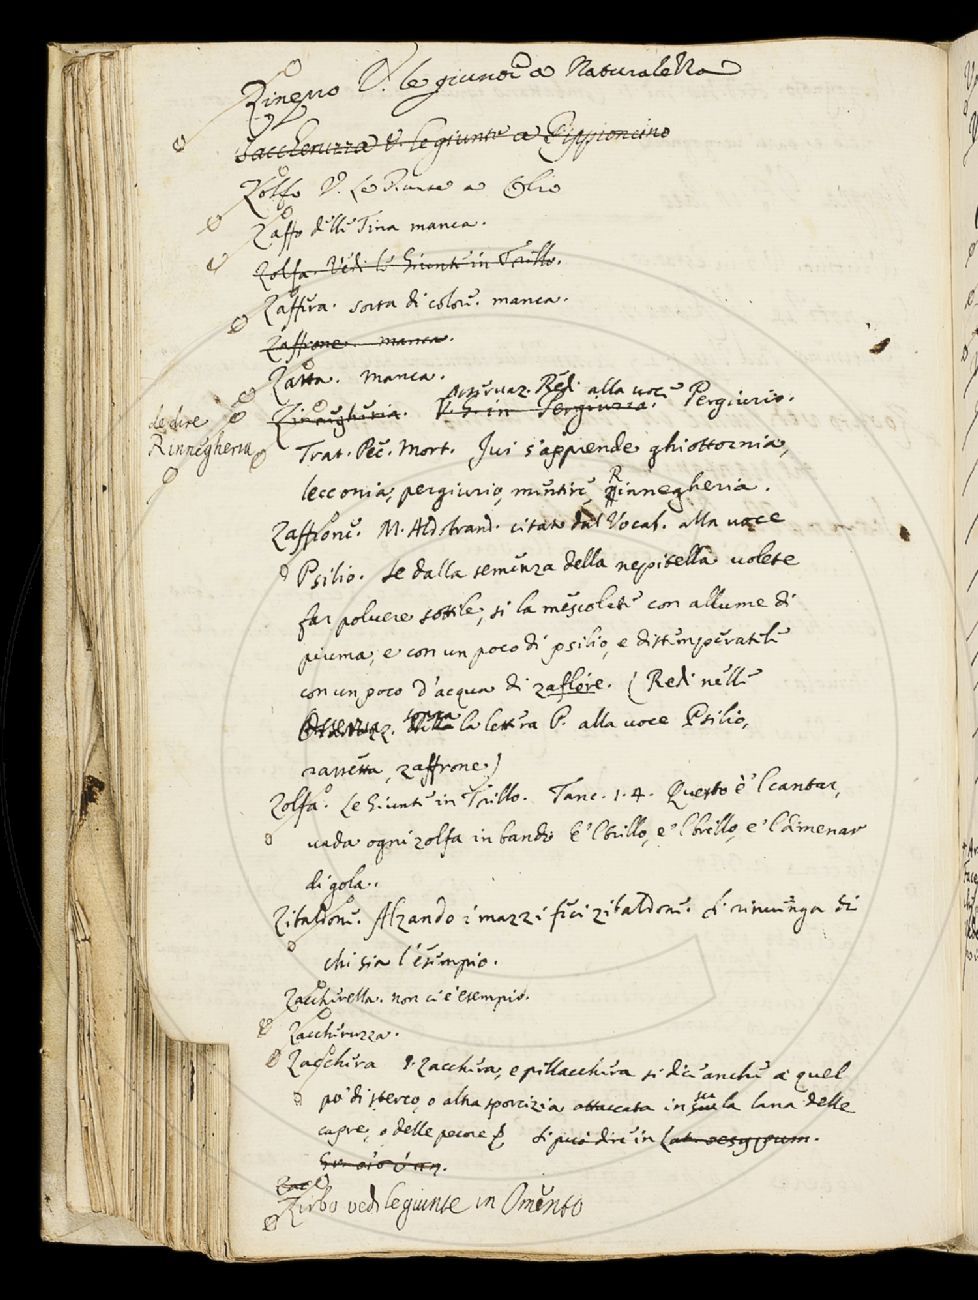 Zinepro V. le giunte a Naturalezza
Zaccheruzza V. le giunte a Pippioncino
Zolfo V. Le Giunte a Olio
Zaffo delle Tina manca.
Zolfa. Vedi le Giunte in Trillo.
Zaffira. sorta di colore. manca.
Zaffrone. manca.
Zatta. manca.
Osservaz. Redi alla voce Pergiurio.
Zinnegheria. V. S. in Pergiurio.
de dire
Rinnegheria
Trat. Pec. Mort. Ivi s'apprende ghiottornia,
lecconia, pergiurio, mentire, Rinnegheria.
Zaffrone. M. Aldobrand. citato dal Vocab. alla voce
Psilio. Se dalla semenza della nepitella volete
far polvere sottile, si la mescolate con allume di
piuma, e con un poco di psilio, e distemperatele
con un poco d'acqua di zaflore. (Redi nelle
Osservaz. sopra la lettera P. alla voce Psilio,
zaffrone.)
Zolfa. Le Giunte in Trillo. Tanc. 1. 4. Questo è 'l cantar,
vada ogni zolfa in bando E 'l trillo, e 'l brillo, e 'l dimenar
di gola.
Zibaldone. Alzando i mazzi feci zibaldone. Si rinvenga di
chi sia l'esempio.
Zaccherella. non ci è esempio.
Zaccheruzza.
Zacchera §. Zacchera, e pillacchera si dice anche a quel
po' di sterco, o altra sporcizia attaccata in su la lana delle
capre, o delle pecore §. Si può dire in Lat. oesypum.
Gr. οἴσυπη.
Zac
Zirbo vedi le giunte in Omento